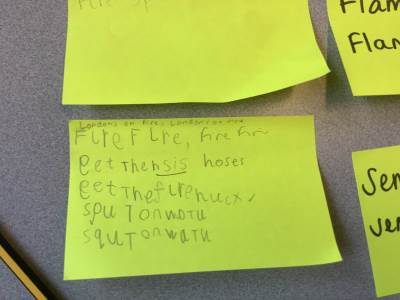 Fire Sp
Flam
Flam
Londons on fire, London's on fire
FireFire, fire fire
eetthensis hoses
eetthefirehucx
sputonwatu
squtonwatu
Sen
ser